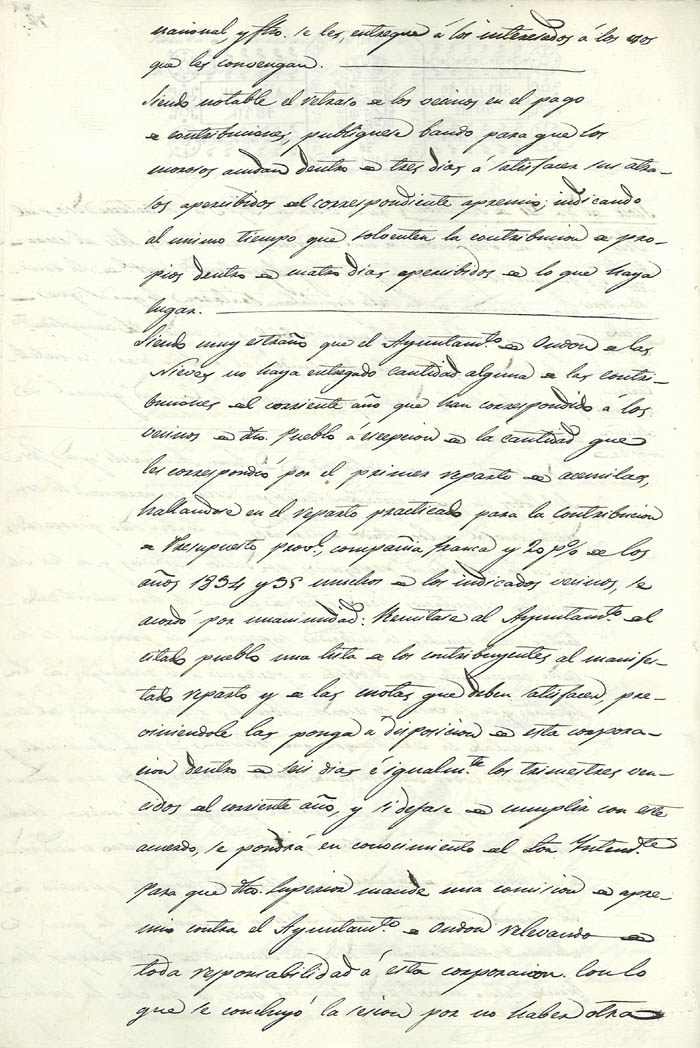 nacional, y fho. se les, entregue á los interesados á los usos
que les convengan.
Siendo notable el retraso de los vecinos en el pago
de contribuciones, publíquese bando para que los
morosos acudan dentro de tres dias á satisfacer sus atra-
sos apercibidos del correspondiente apremio; indicando
al mismo tiempo que solventen la contribucion de pro-
pios dentro de cuatro dias apercibidos de lo que haya
lugar.
Siendo muy estraño que el Ayuntamto. de Ondon de las
Nieves no haya entregado cantidad alguna de las contri-
buciones del corriente año que han correspondido á los
vecinos de dho. Pueblo á escepcion de la cantidad que
les correspondió por el primer reparto de acemilas,
hallandose en el reparto practicado para la contribucion
de Presupuesto provl., compañia franca y 20 p% de los
años 1834 y 35 muchos de los indicados vecinos, se
acordó por unanimidad: Remitase al Ayuntamto. del
citado pueblo una lista de los contribuyentes al manifes-
tado reparto y de las cuotas que deben satisfacer, pre-
viniendole las ponga a disposicion de esta corpora-
cion dentro de seis dias é igualmte. los trimestres ven-
cidos del corriente año, y si dejase de cumplir con este
acuerdo, se pondrá en conocimiento del Sor. Intendte.
para que dho. Superior mande una comision de apre-
mio contra el Ayuntamto. de Ondon relevando de
toda responsabilidad á esta corporacion. Con lo
que se concluyó la sesion por no haber otra